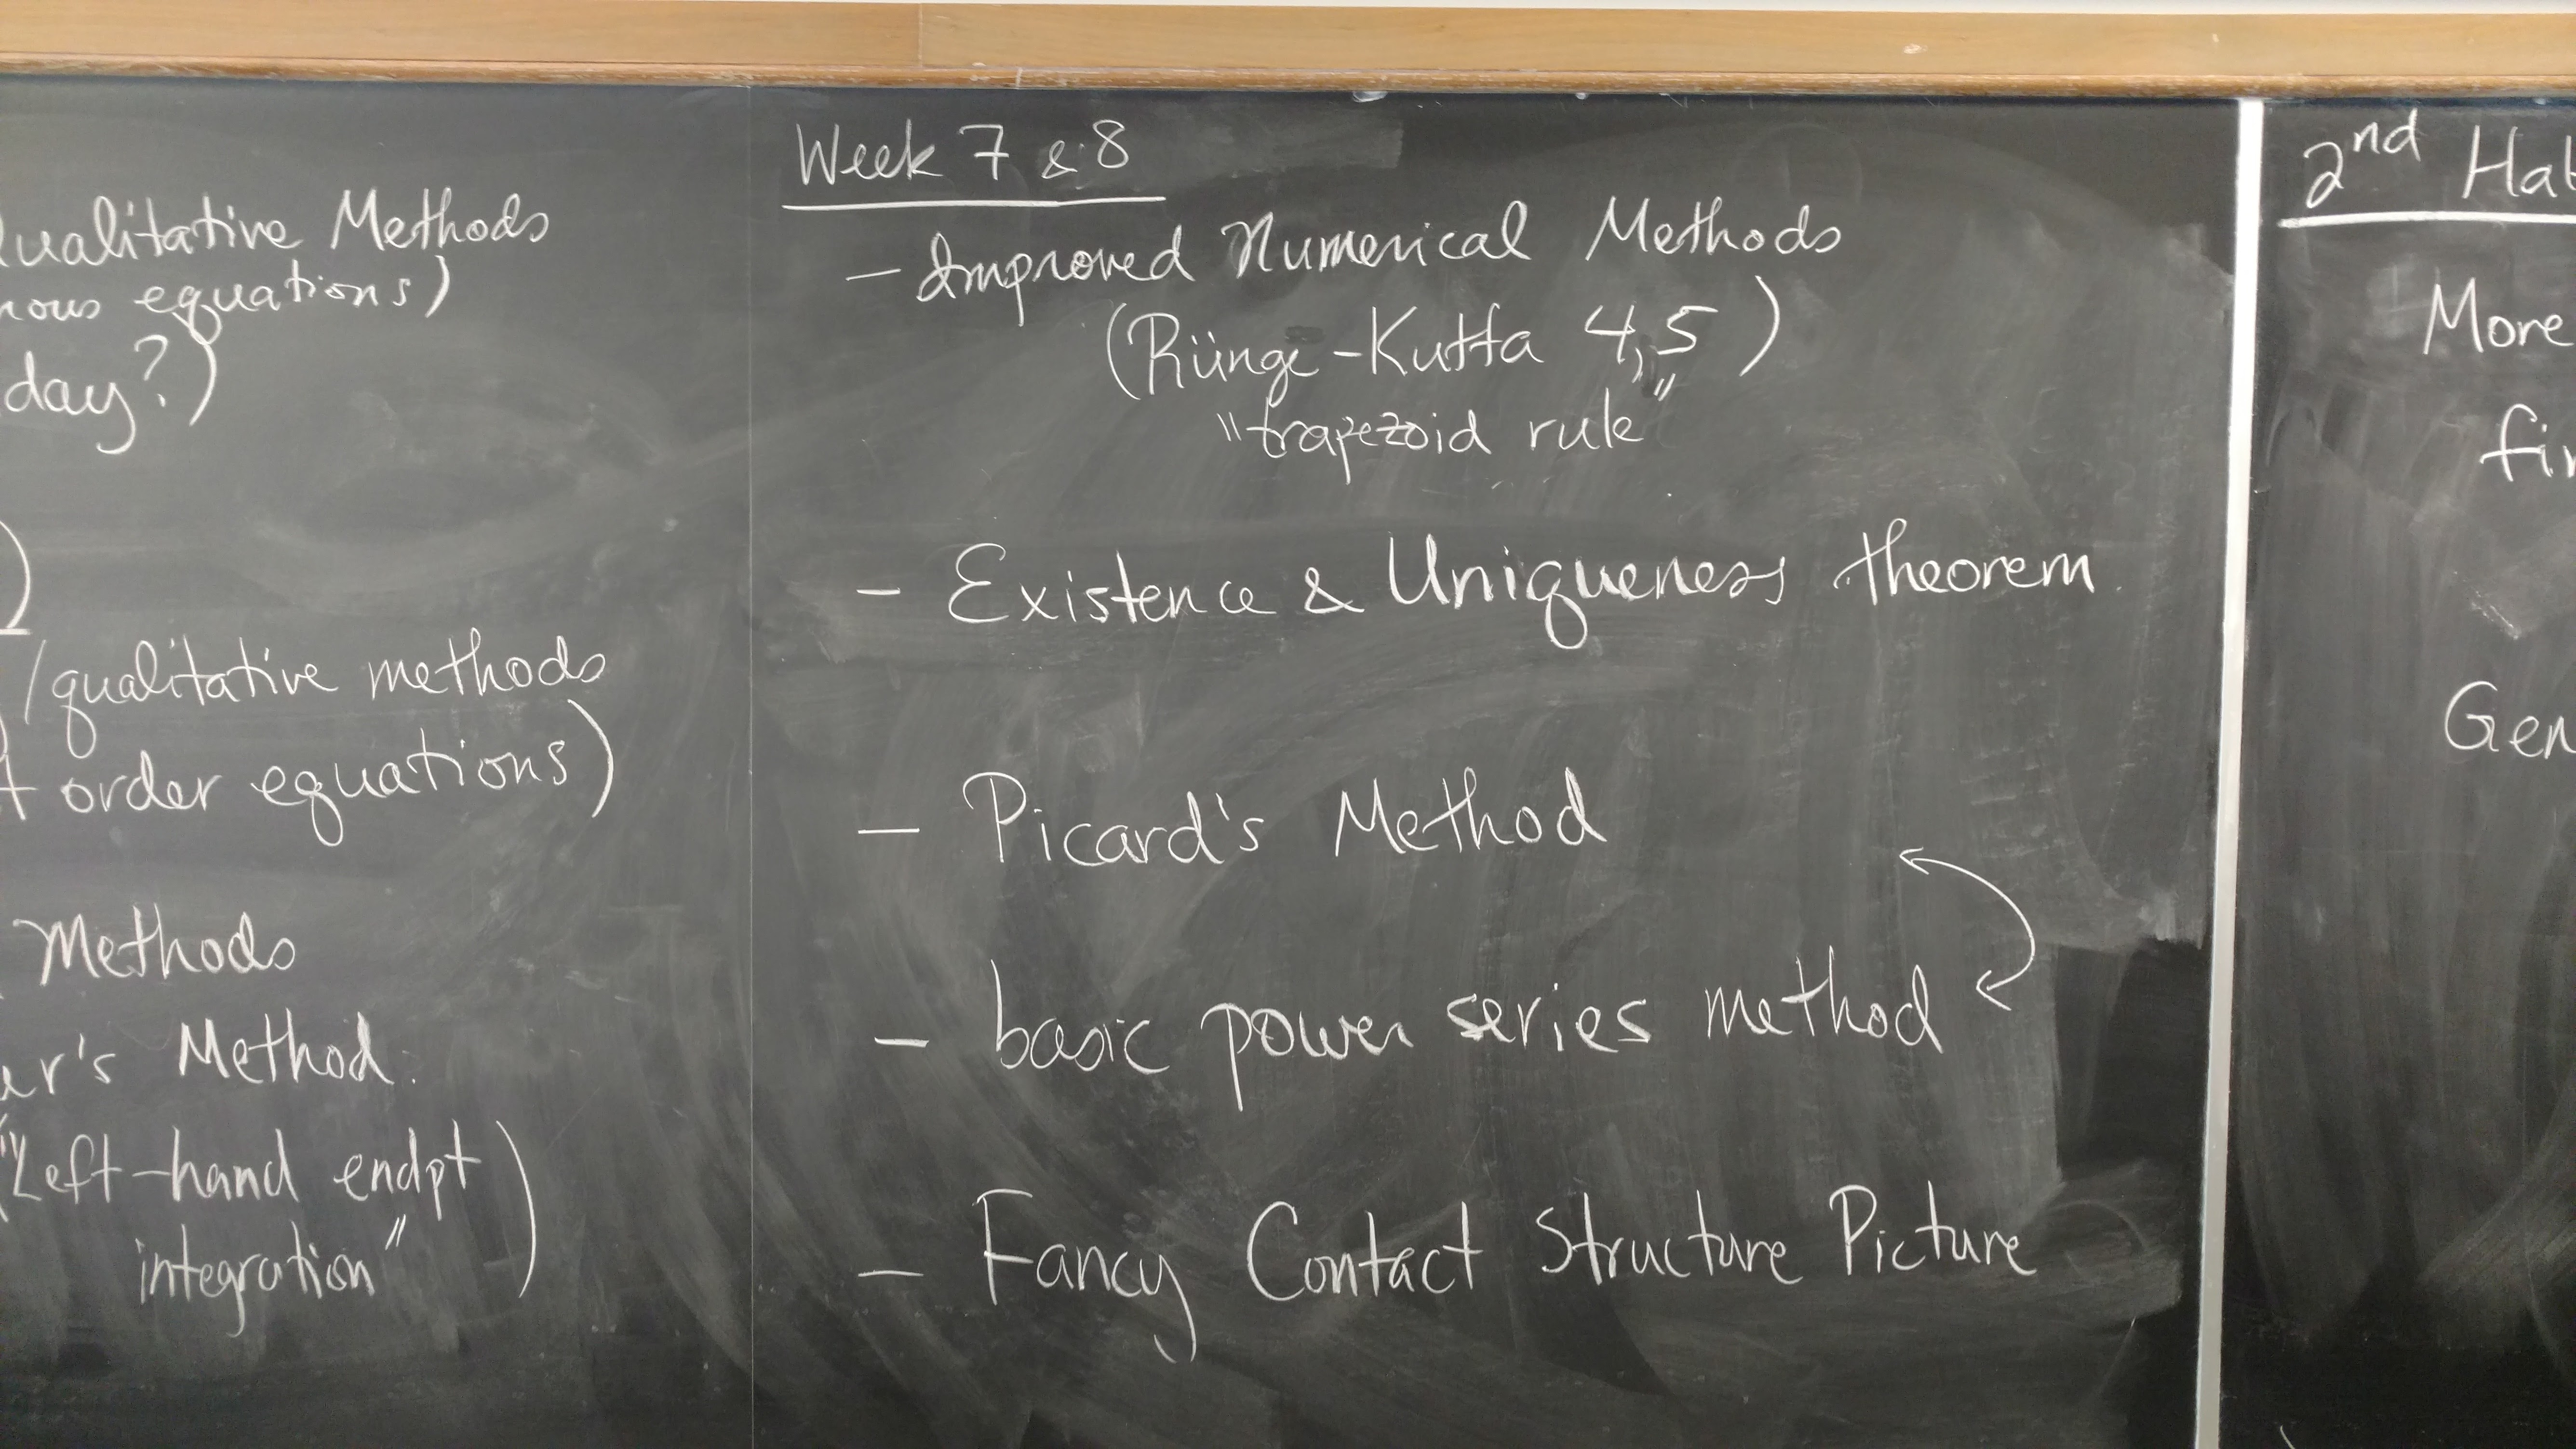 Qualitative Methods
equations)
day?)
)
/qualitative methods
order equations)
Methods
Method.
("Left-hand endpt
integration")
Week 7 & 8
- Improved Numerical Methods
(Rünge-Kutta 4,5)
"trapezoid rule"
- Existence & Uniqueness theorem
- Picard's Method
- basic power series method
- Fancy Contact Structure Picture
2nd
More